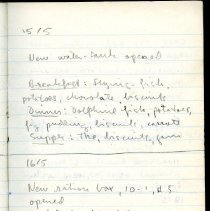 15/5
New water-tank opened
Breakfast: Flying-fish,
potatoes, chocolate biscuits
Dinner: Dolphine fish, potatoes,
fig pudding, biscuits, sweets
Supper: Tea, biscuits,
16/5
New ration box, 10-
opened